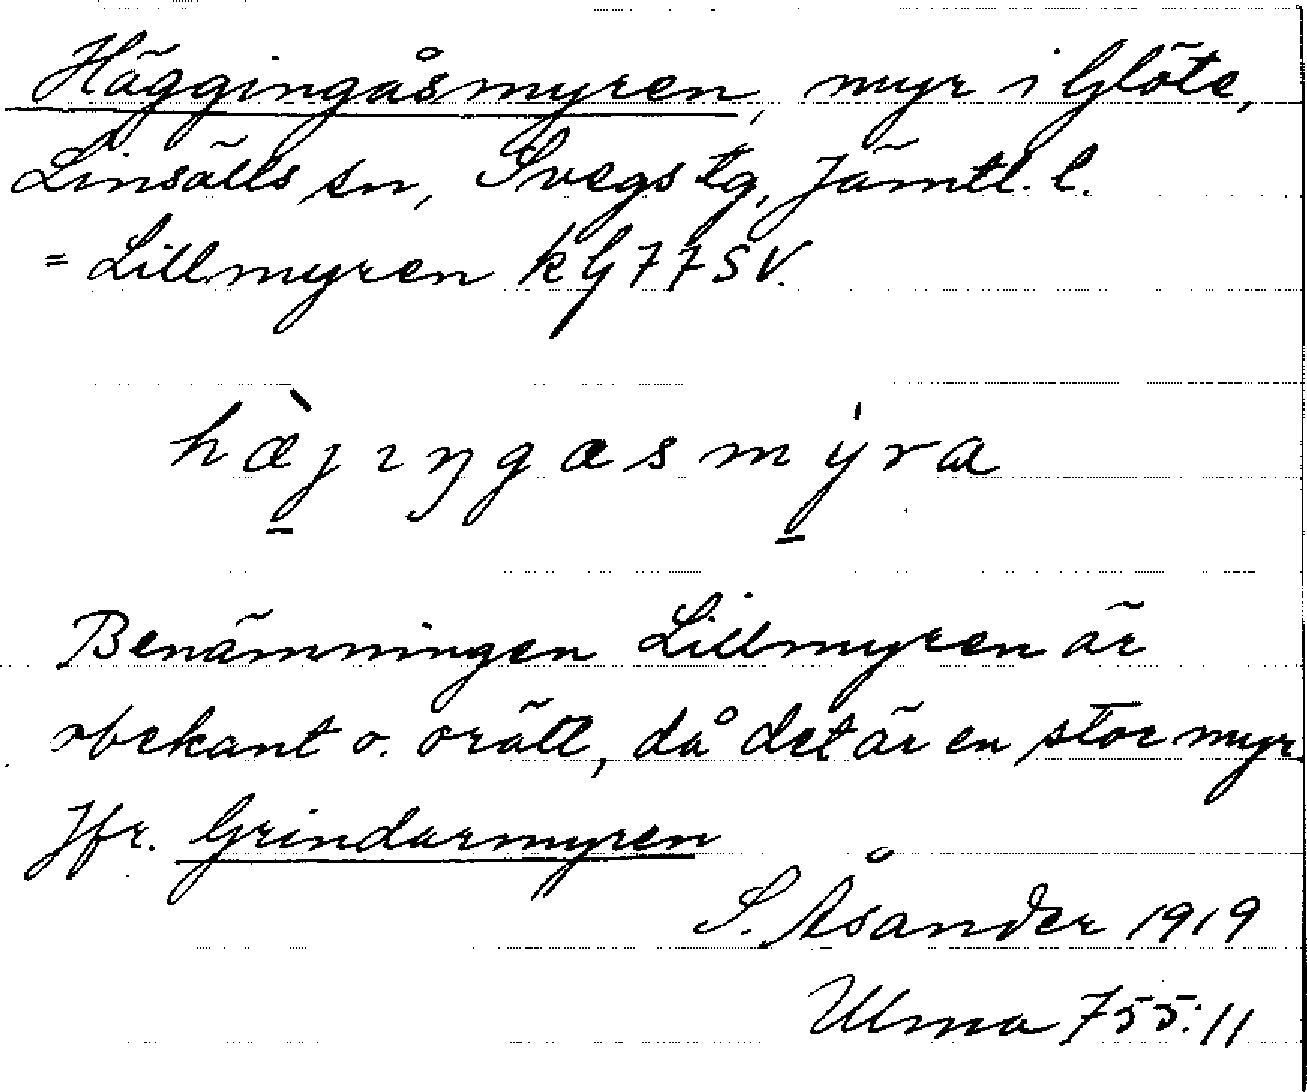 Häggingåsmyren, myr i Glöte,
Linsälls sn, Svegs tg, Jämtl. l.
= Lillmyren kbl 77 SV.
hæ̀jıŋgasmýra
Benämningen Lillmyren är
obekant o. orätt, då det är en stor myr
Jfr. Grindarmyren
S. Åsander 1919
Ulma 755:11